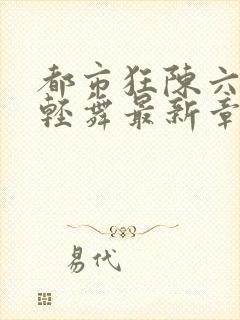 都市狂陈六
轻舞最新章
易代